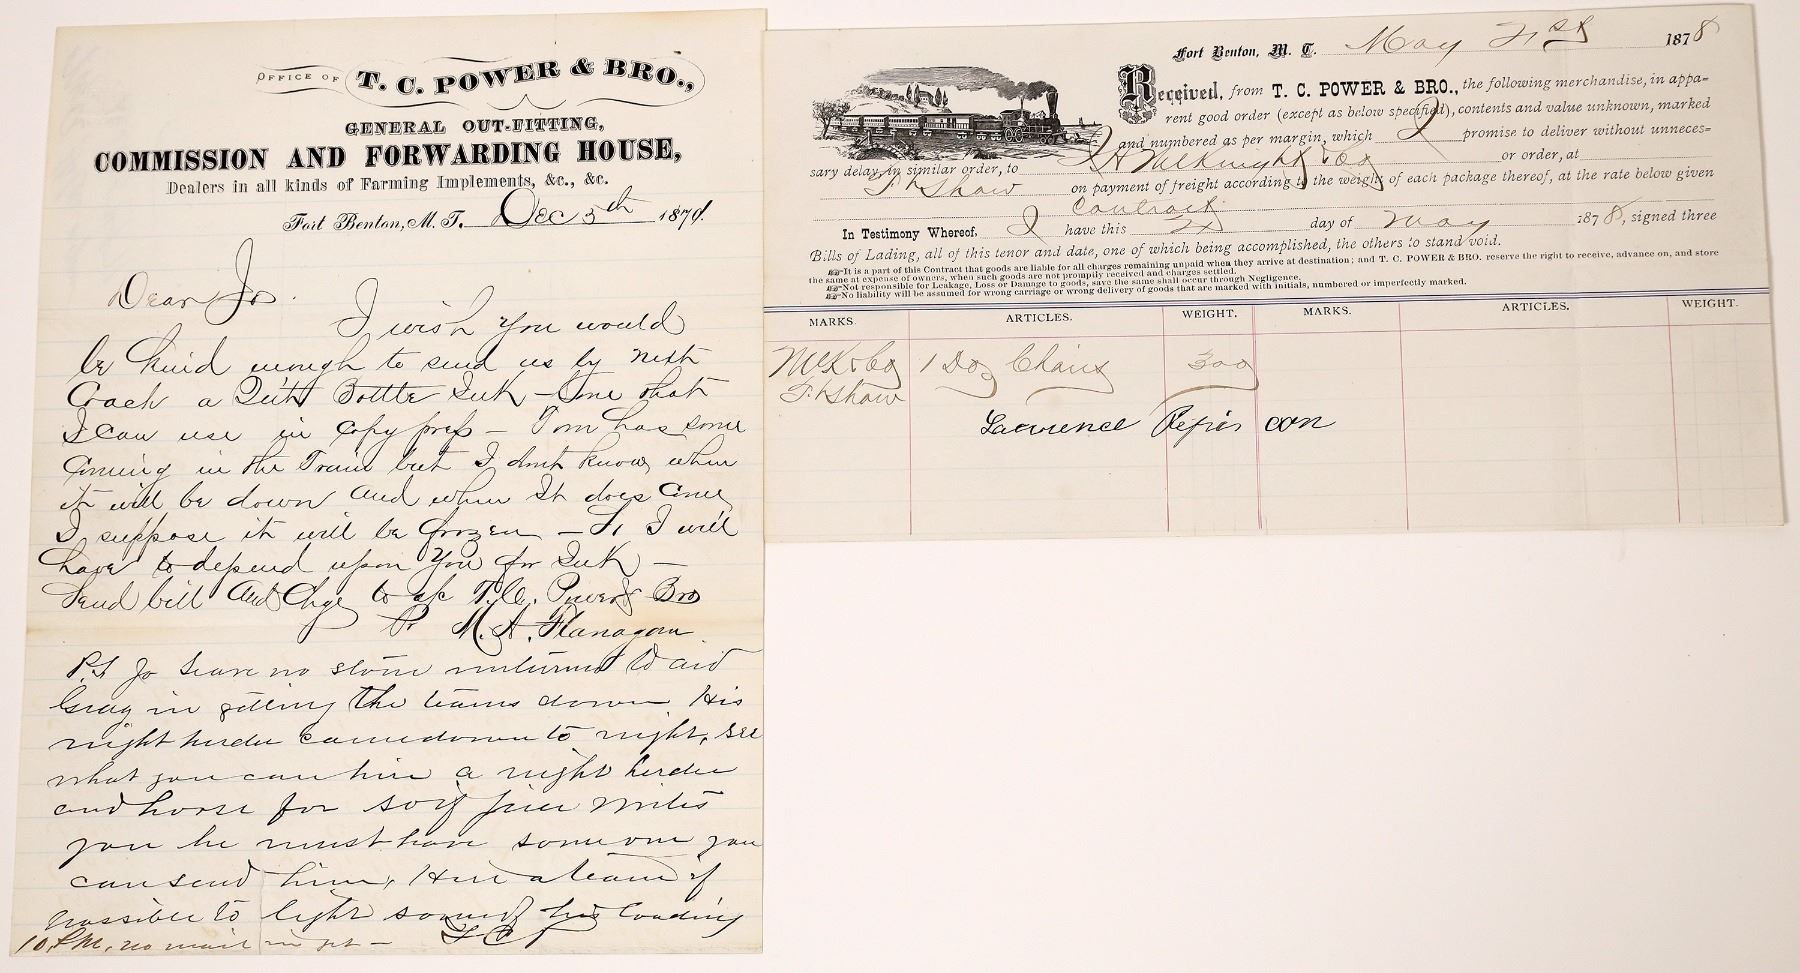 OFFICE OF T. C. POWER & BRO.,
GENERAL OUT-FITTING,
COMMISSION AND FORWARDING HOUSE,
Dealers in all kinds of Farming Implements, &c., &c.
Fort Benton, M. T. Dec 5th 187
Dear Jo.
I wish you would
be kind enough to send us by next
Coach a Bottle Ink - One that
I can use in copy press - Tom has some
Coming in the Train but I dont know when
it will be down and when It does come
I suppose it will be frozen - So I will
have to depend upon You for Ink -
Send bill and Chge to a/c T.C. Power & Bro
Pr M. A. Flanagan
P.S Jo leave no stone unturned to aid
Gray in getting the teams down. His
night herder came down to night, see
what you can hire a night herder
and horse for so if writes
you he must have some one you
can send him, Hire a team if
possible to light some of his loading
10 P.M, no mail in yet - T C P
Fort Benton, M. T. May 21st 1878
Received, from T. C. POWER & BRO., the following merchandise, in appa-
rent good order (except as below specified), contents and value unknown, marked
and numbered as per margin, which I promise to deliver without unneces-
sary delay in similar order, to J H McKnight & Co or order, at
Ft Shaw on payment of freight according to the weight of each package thereof, at the rate below given
Contract
In Testimony Whereof, I have this 21 day of May 1878, signed three
Bills of Lading, all of this tenor and date, one of which being accomplished, the others to stand void.
It is a part of this Contract that goods are liable for all charges remaining unpaid when they arrive at destination; and T. C. POWER & BRO. reserve the right to receive, advance on, and store
the same at expense of owners, when such goods are not promptly received and charges settled.
Not responsible for Leakage, Loss or Damage to goods, save the same shall occur through Negligence.
No liability will be assumed for wrong carriage or wrong delivery of goods that are marked with initials, numbered or imperfectly marked.
MARKS. ARTICLES. WEIGHT. MARKS. ARTICLES. WEIGHT.
McK & Co 1 Doz Chairs 300
Ft Shaw
Lawrence